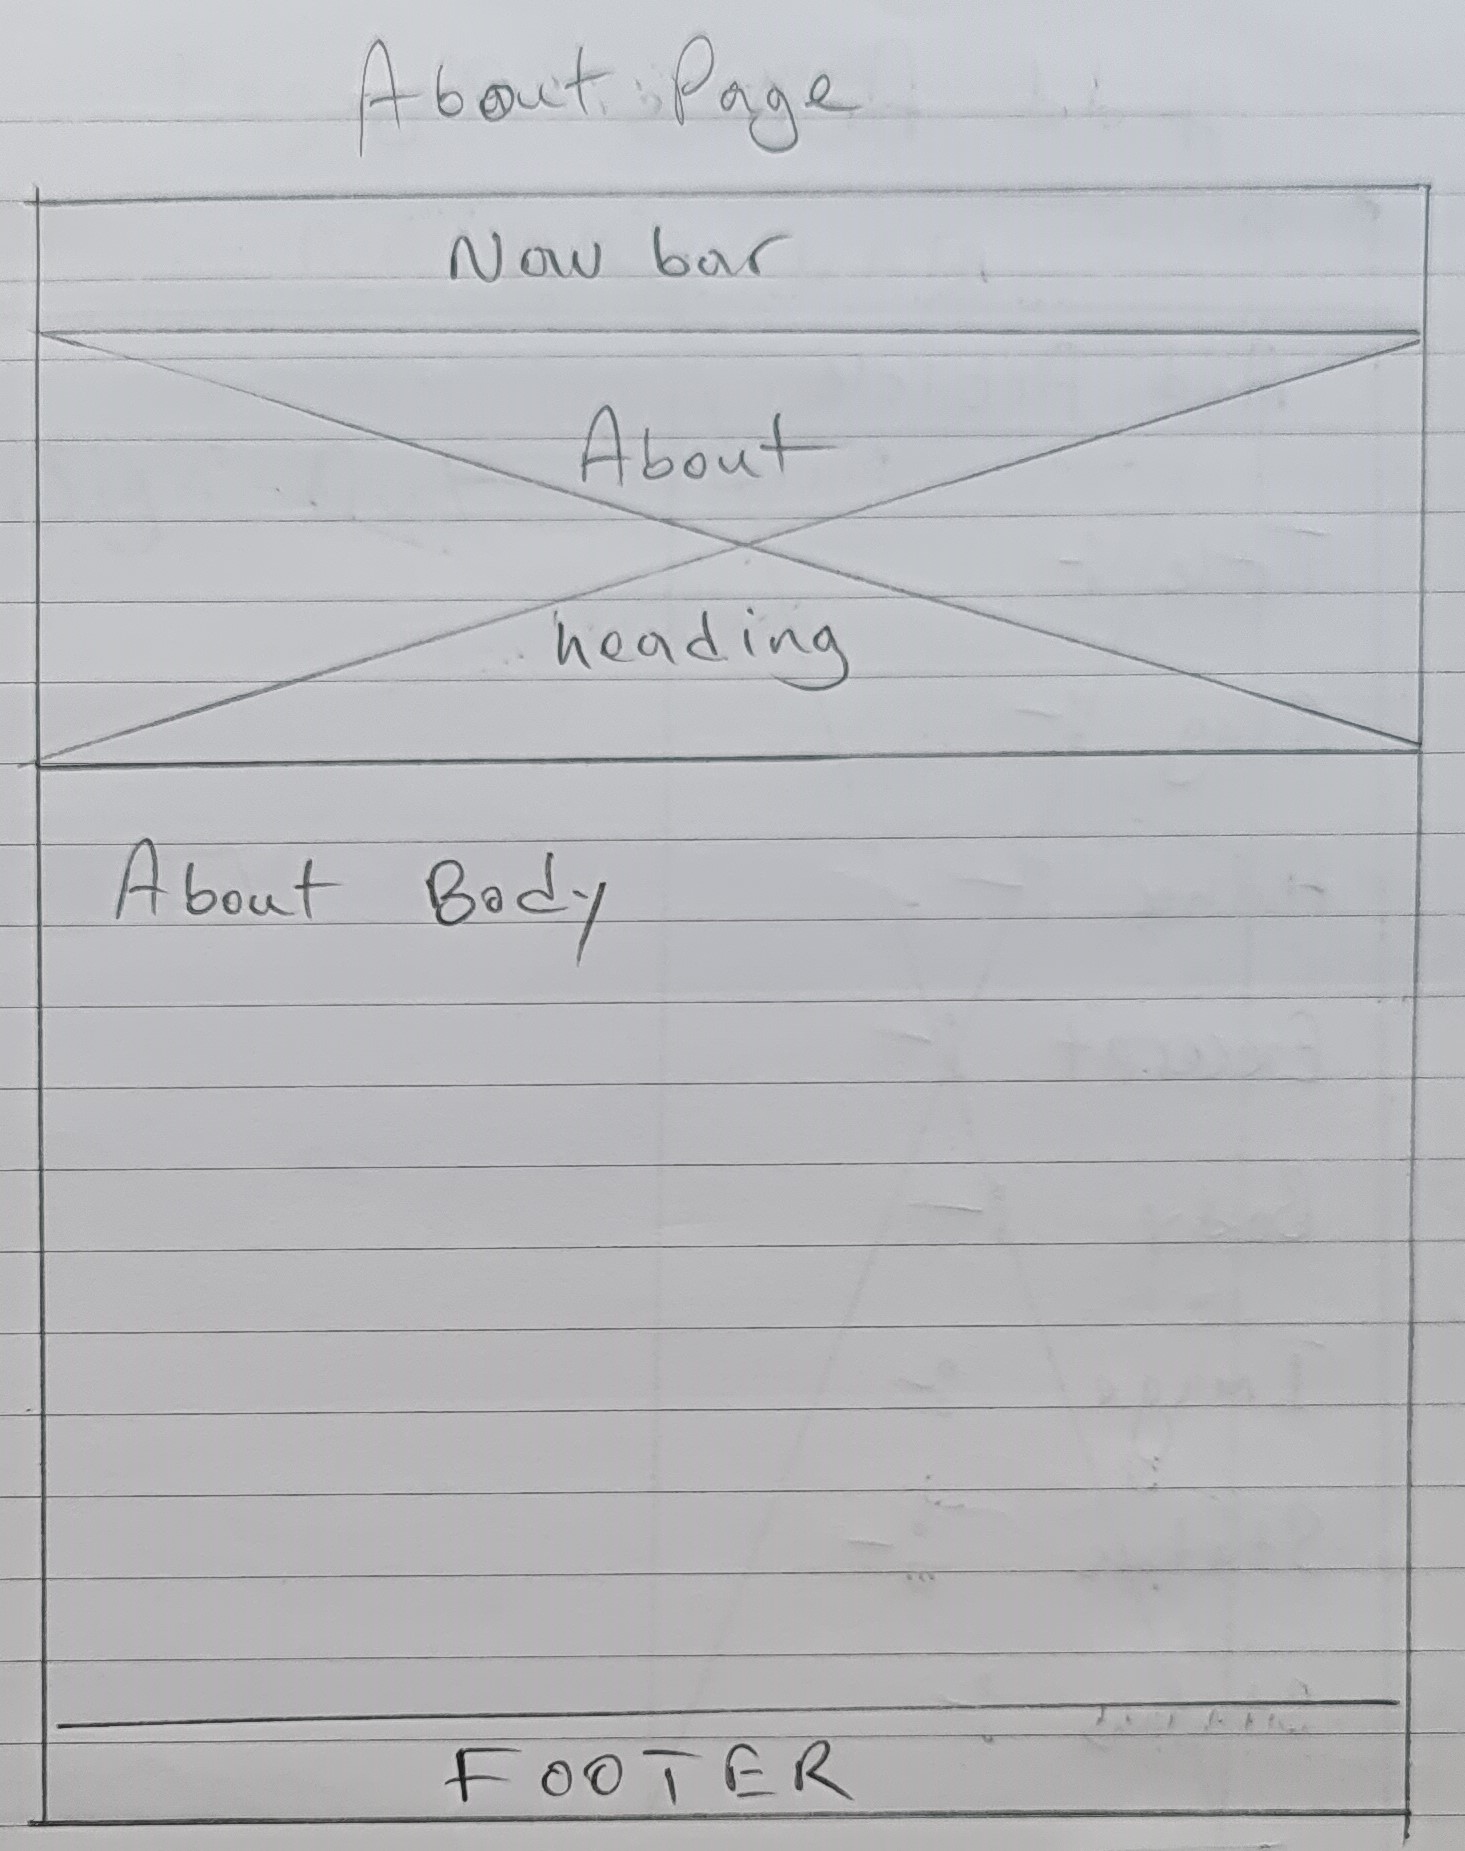 About Page
Nav bar
About
heading
About Body
FOOTER